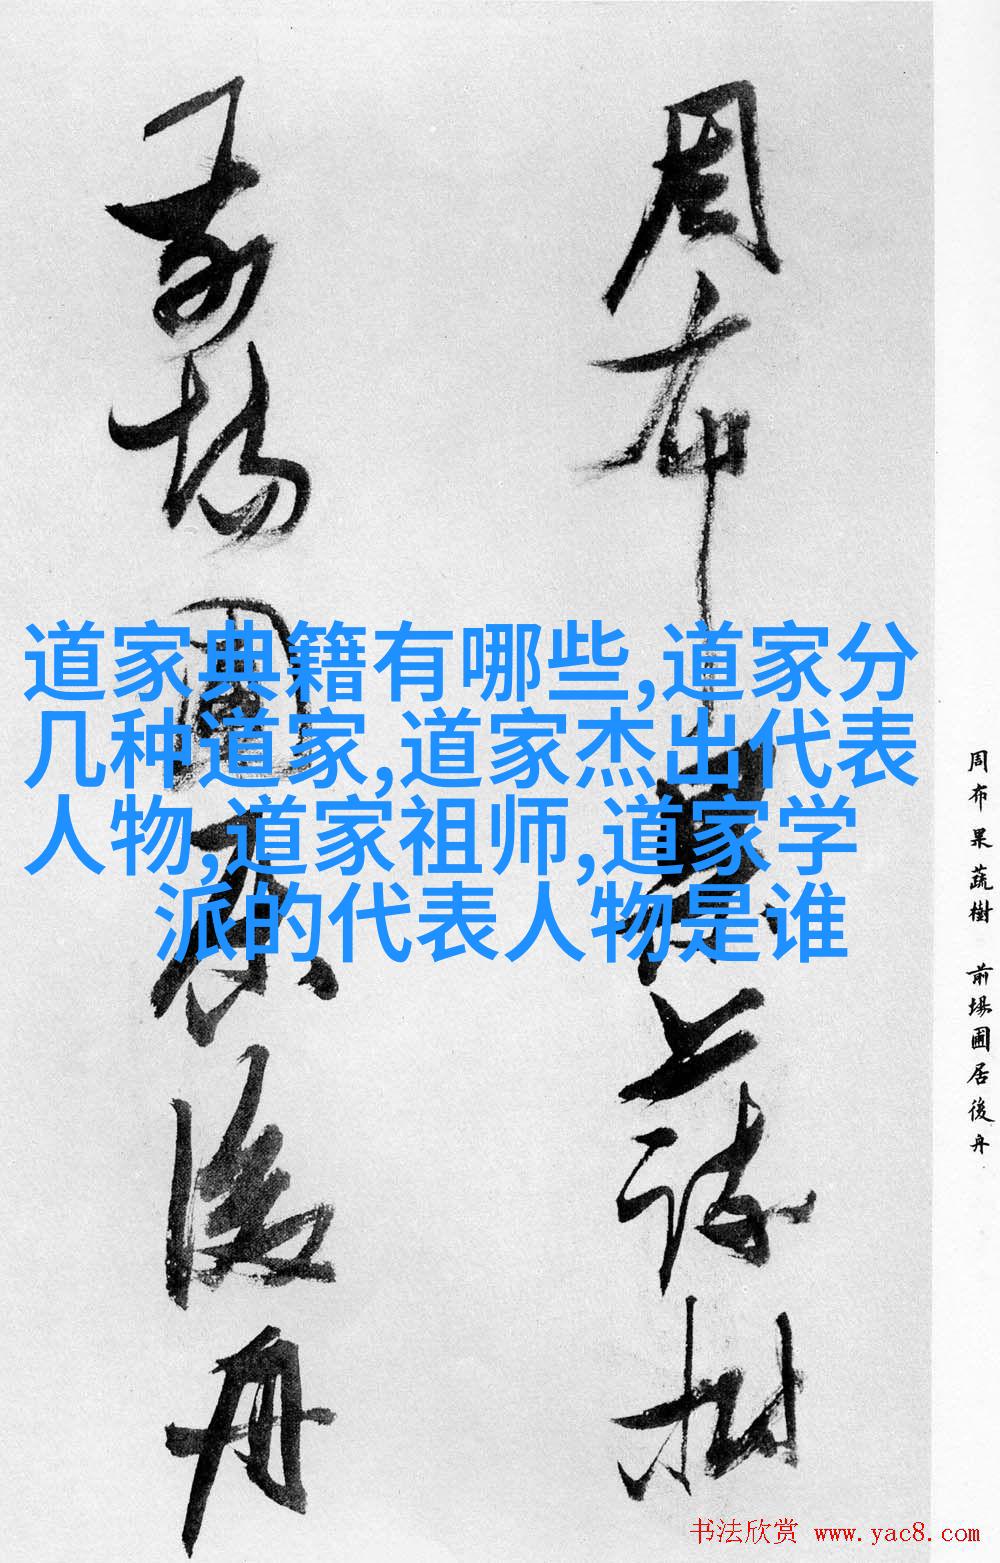 周布果蔬樹
前場圃居後舟
道家典籍有哪些,道家分
几种道家,道家杰出代表
人物,道家祖师,道家学
派的代表人物是谁
周布果蔬樹 前場圃居後舟
书法欣赏 www.yac8.com